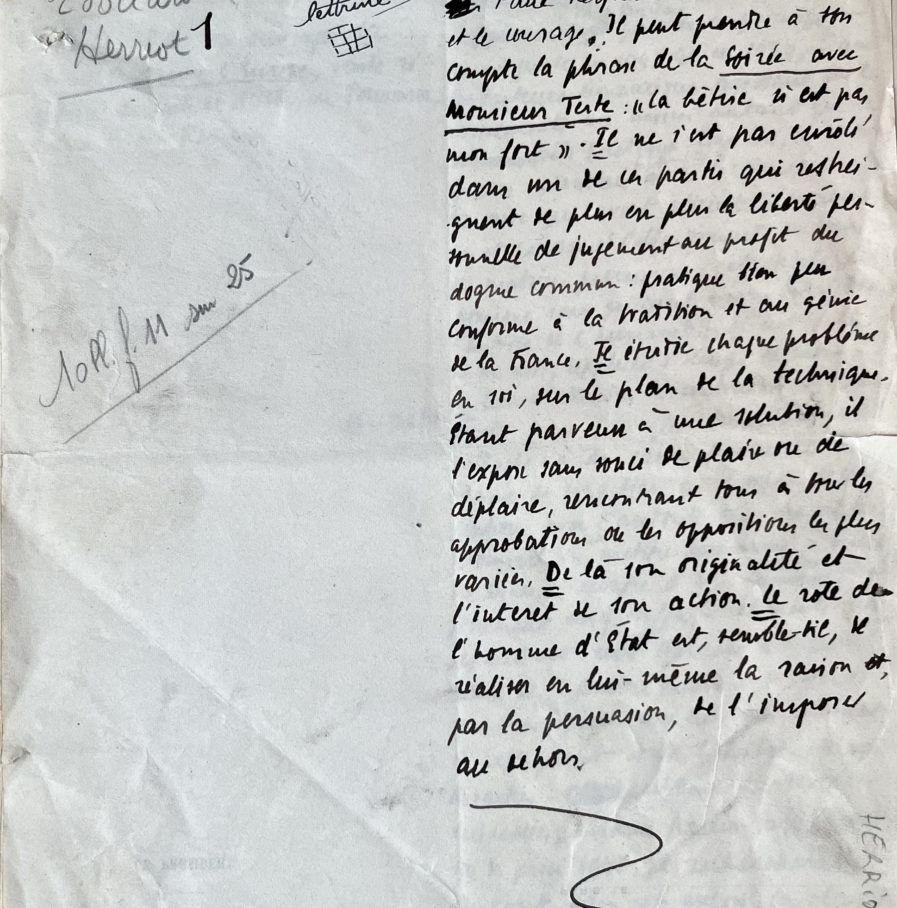 Herriot 1
lettrine
10 pt. f. 11 sur 25
et le courage. Il peut prendre à son
compte la phrase de la Soirée avec
Monsieur Teste : « la bêtise n'est pas
mon fort ». Il ne s'est pas enrôlé
dans un de ces partis qui restrei-
gnent de plus en plus la liberté per-
sonnelle de jugement au profit du
dogme commun : pratique bien peu
conforme à la tradition et au génie
de la France. Il étudie chaque problème
en soi, sur le plan de la technique.
Étant parvenu à une solution, il
l'expose sans souci de plaire ou de
déplaire, rencontrant tour à tour les
approbations ou les oppositions les plus
variées. De là son originalité et
l'intérêt de son action. Le rôle de
l'homme d'État est, semble-t-il, de
réaliser en lui-même la raison et,
par la persuasion, de l'imposer
au dehors.